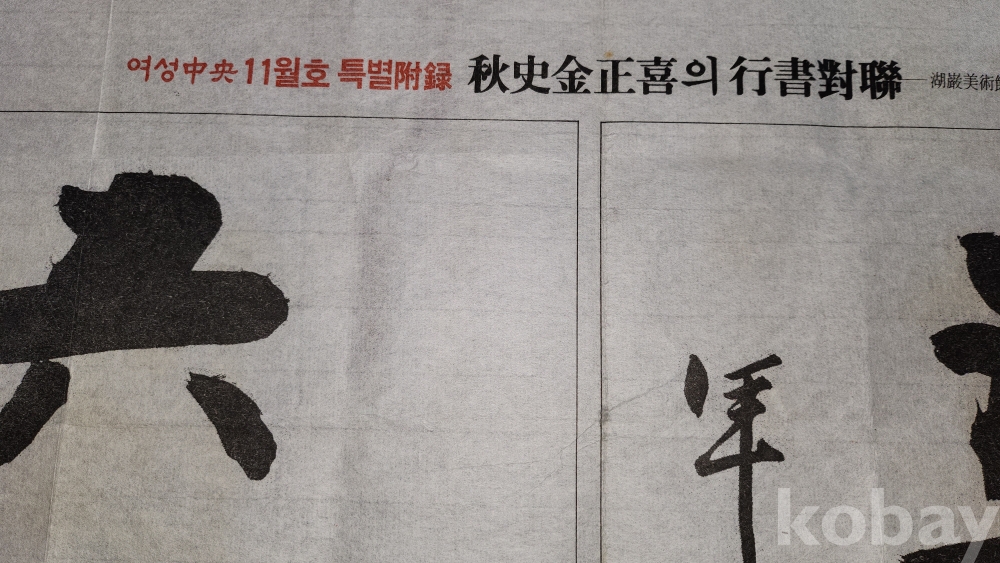 여성中央 11월호 특별附録 秋史金正喜의 行書對聯 ── 湖巖美術館
六
军
kobay